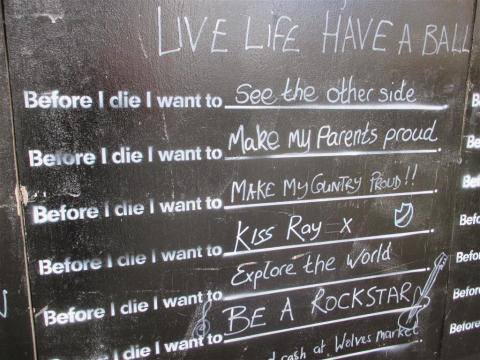 LIVE LIFE HAVE A BALL
Before I die I want to See the other side
Before I die I want to Make my Parents proud.
Before I die I want to MAKE MY COUNTRY PROUD!!
Before I die I want to Kiss Ray x
Before I die I want to Explore the World
Before I die I want to BE A ROCKSTAR
Before I die I want to cash at Wolves market